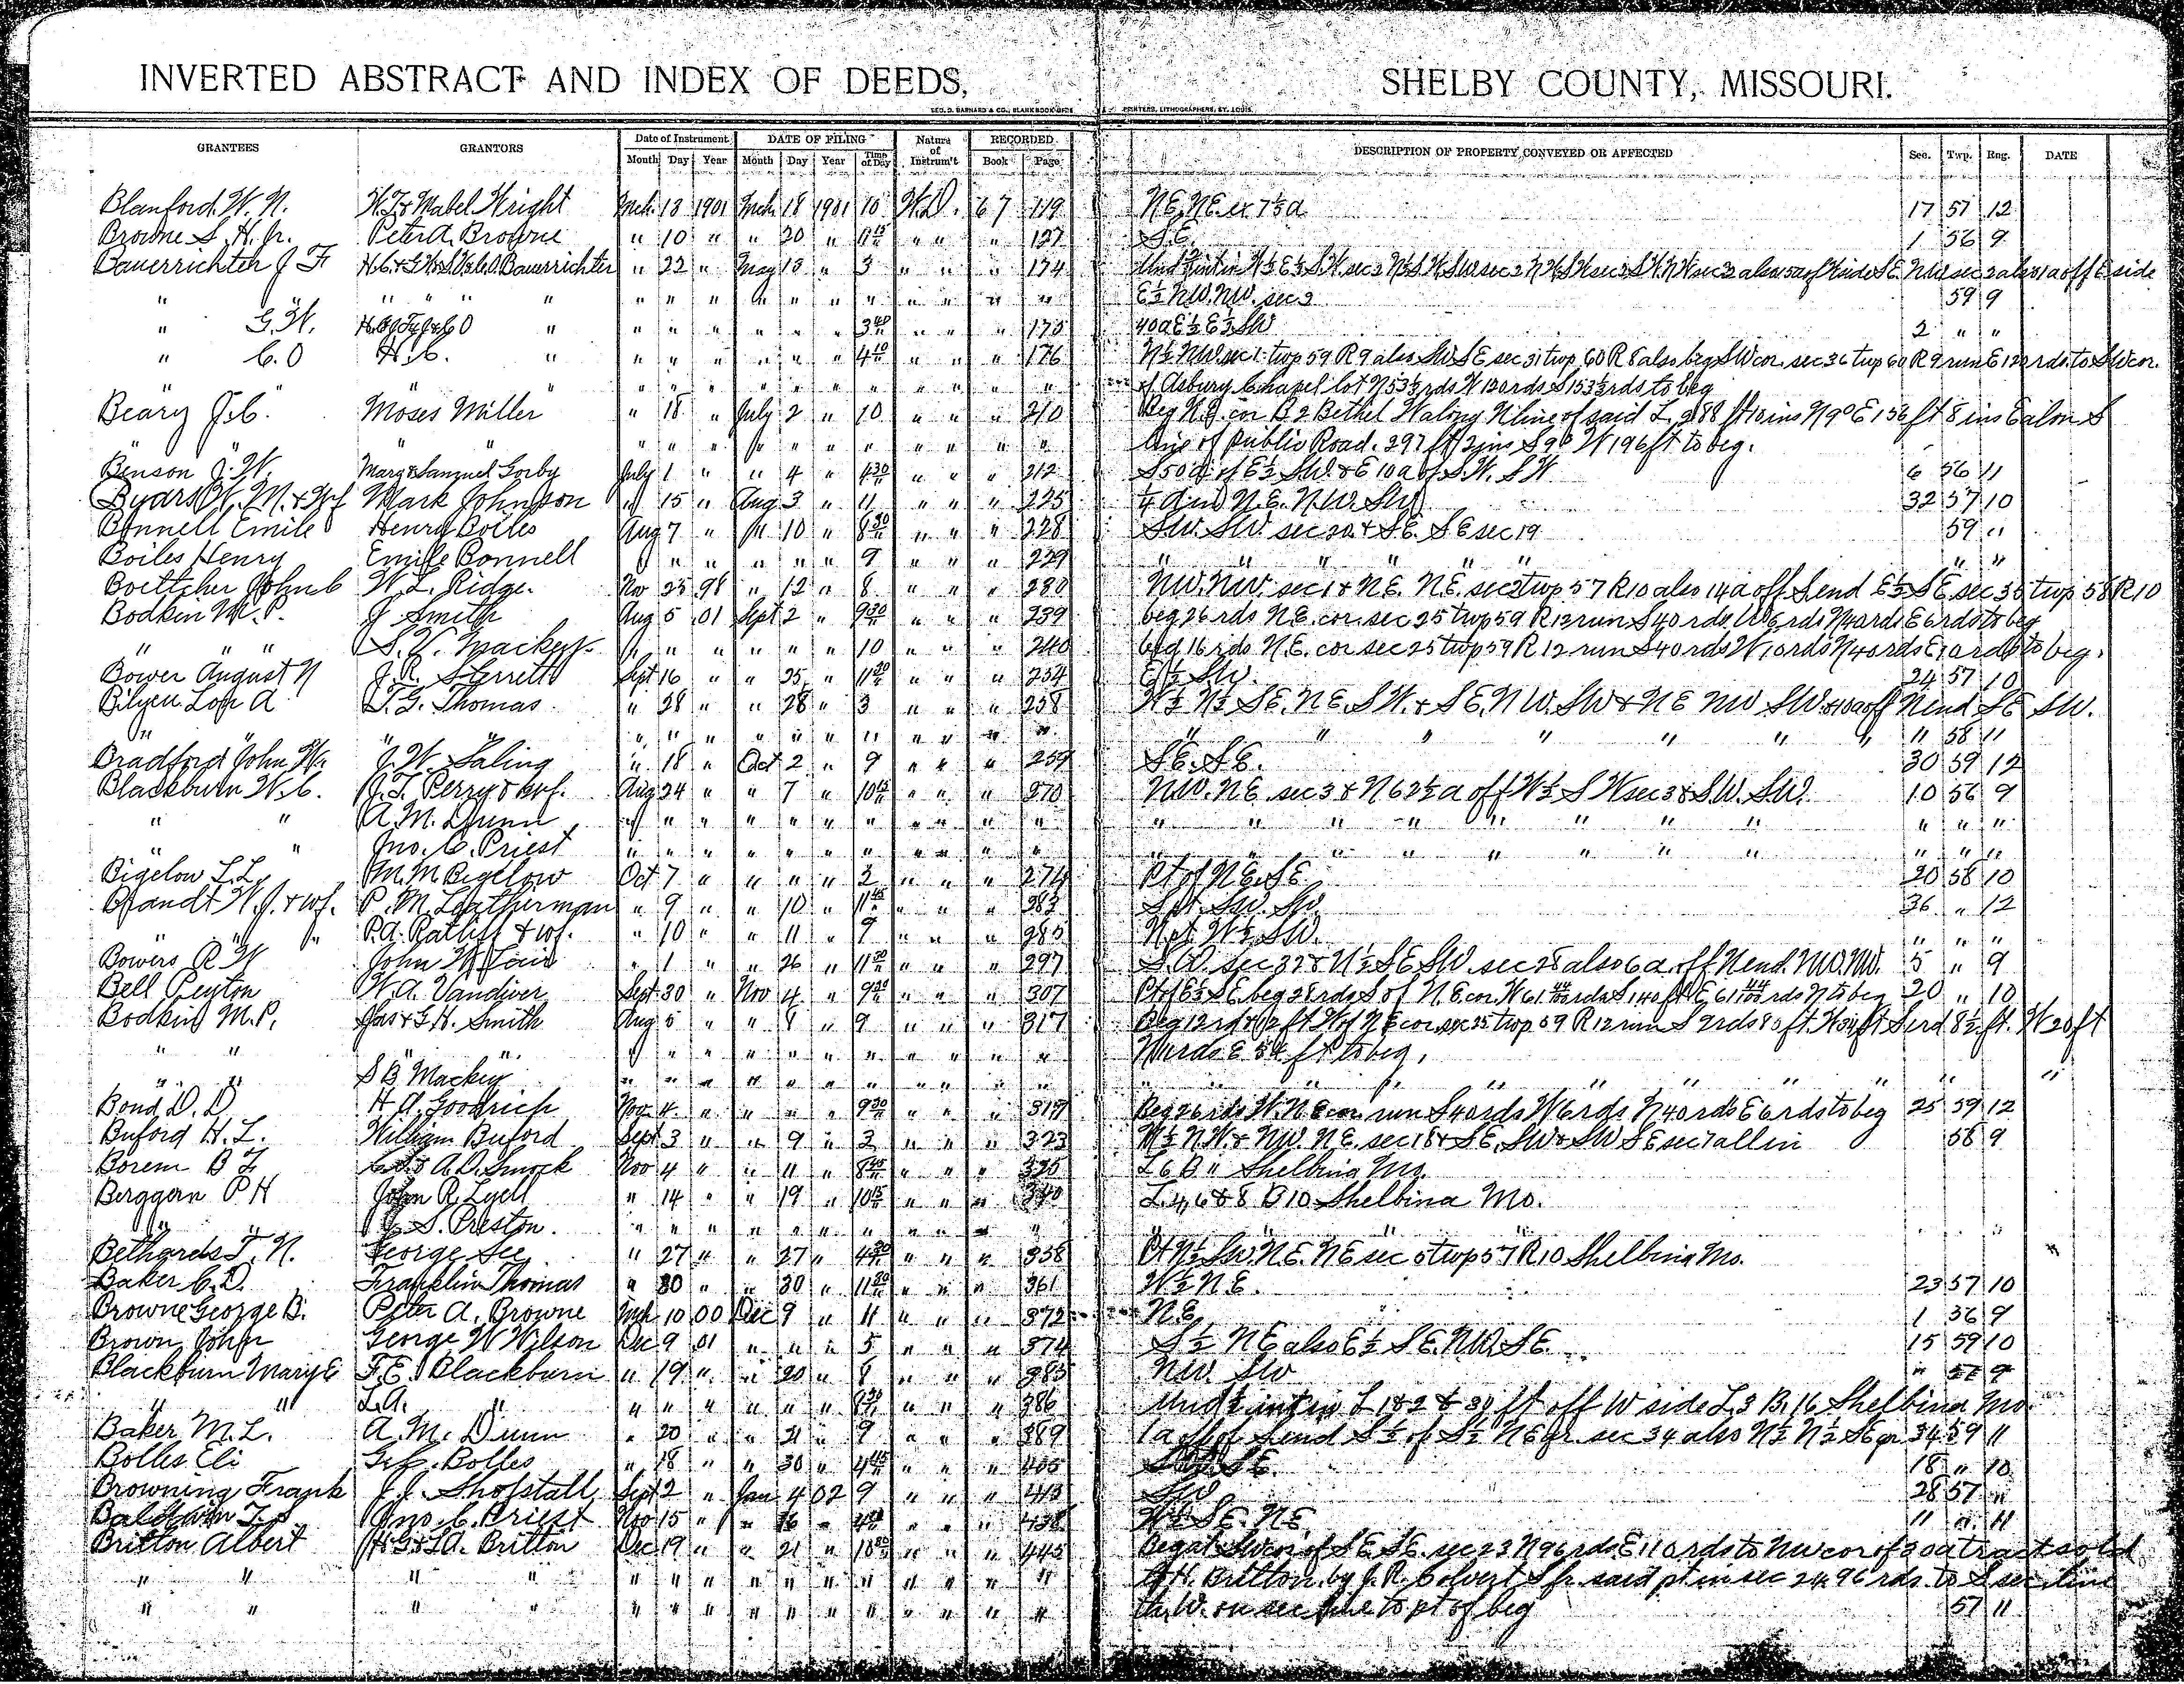 INVERTED ABSTRACT AND INDEX OF DEEDS, SHELBY COUNTY, MISSOURI.
GEO. D. BARNARD & CO., BLANK BOOK PRINTERS, LITHOGRAPHERS, ST. LOUIS.
GRANTEES GRANTORS Date of Instrument DATE OF FILING Nature of Instrum't RECORDED DESCRIPTION OF PROPERTY CONVEYED OR AFFECTED Sec. Twp. Rng. DATE
Month Day Year Month Day Year Time of Day Book Page
Blanford W. N. Mabel Wright Mch. 13 1901 Mch. 18 1901 10 W.D. 67 119 N.E. N.E. ex 7 a 17 57 12
Browne S. H. Jr. Peter A. Browne " 10 " " 20 " " " " 127 S.E. 1 56 9
Bauerrichter J F Bauerrichter " 22 " May 15 " 3 " " " 174
" " " " " " " " " " " " " " " E½ N.W. N.W. sec 2 59 9
" G. W. " " " " " " " 3 40 " " " 175 40 a E½ E½ SW 2 " "
" C. O H. C. " " " " " " " 4 10 " " " 176 N½ NW sec 1 twp 59 R 9 also SW SE sec 31 twp 60 R 8 also beg SW cor. sec 36 twp 60 R 9 run E 120 rds. to SW cor.
" " " " " " " " " " " " " " " of Asbury Chapel lot N 53⅓ rds W 120 rds S 153⅓ rds to beg
Beary J. C. Moses Miller " 18 " July 2 " 10 " " " 210 Beg N.E. cor B 2 Bethel W along N line of said L 288 ft 10 ins N 9° E 156 ft 8 ins E alon S
" " " " " " " " " " " " " line of public Road. 297 ft 2 ins S 9° W 196 ft to beg.
Benson J. W. Mary & Samuel Gorby July 1 " " 4 " 4 30 " " " 212 S 50 a of E½ S.W. & E 10 a of S.W. S W 6 56 11
Byars W. M. & wf Mark Johnson " 15 " Aug 3 " 11 " " " 225 ¼ a in N.E. N.W. SW 32 57 10
Bonnell Emile Henry Boiles Aug 7 " " 10 " 8 30 " " " 228 S.W. S.W. sec 20 & S.E. S E sec 19 59 "
Boiles Henry Emile Bonnell " " " " " " 9 " " " 229 " " " " " " " " "
Boettcher John C W. L. Ridge. Nov 25 98 " 12 " 8 " " " 230 N.W. N.W. sec 1 & N.E. N.E. sec 2 twp 57 R 10 also 14 a off S end E½ S E sec 35 twp 58 R 10
Bodkin M. P. J Smith Aug 5 01 Sept 2 " 9 30 " " " 239 beg 26 rds N.E. cor. sec 25 twp 59 R 12 run S 40 rds. W 6 rds N 40 rds E 6 rds to beg
" " S. V. Mackey " " " " " " 10 " " " 240 beg 16 rds N.E. cor sec 25 twp 59 R 12 run S 40 rds W 10 rds N 40 rds E 10 rds to beg.
Bower August N J. R. Sterrett Sept 16 " " 25 " 11 20 " " " 254 E½ SW. 24 57 10
Bilyeu Lon A T. G. Thomas " 28 " " 28 " 3 " " " 258 W½ N½ S.E. N.E. S.W. & S.E. N.W. SW & N E NW SW & 10 a off N end S E SW.
" " " " " " " " " " " " " " " " " " " 58 11
Bradford John W. J. W. Saling " 18 " Oct 2 " 9 " " " 259 S.E. S.E. 30 59 12
Blackburn W. C. J. T. Perry & wf. Aug 24 " " 7 " 10 15 " " " 270 N.W. N.E sec 3 & N 62½ a off W½ S W sec 3 & SW. SW. 10 56 9
" " A. M. Dunn " " " " " " " " " " " " " " " " " " " " " "
" " Jno. C. Priest " " " " " " " " " " " " " " " " " " " " " "
Bigelow L. L. M. M Bigelow Oct 7 " " " " 2 " " " 274 Pt of N.E. S.E. 20 58 10
Brandt W. J. & wf. P. M. Leatherman " 9 " " 10 " 11 45 " " " 283 S pt SW. SW. 36 " 12
" " " P. A. Ratliff & wf. " 10 " " 11 " 9 " " " 285 N pt W½ SW. " " "
Bowers R W John W " 1 " " 26 " 11 30 " " " 297 S.W. sec 32 & N½ S E SW. sec 28 also 6 a. off N end. NW. NW. 5 " 9
Bell Peyton W. A. Vandiver Sept 30 " Nov 4 " 9 30 " " " 307 Pt of E½ S E. beg 28 rds S of N.E. cor. W 61 rds S 140 ft E 61 rds N to beg 20 " 10
Bodkin M. P. Jas & G. H. Smith Aug 5 " " 8 " 9 " " " 317 Beg 12 rds & 12 ft W of N E cor sec 25 twp 59 R 12 run S
" " " " " " " " " " " " " " E 54 ft to beg.
" " S B Mackey " " " " " " " " " " " " " " " " " " " "
Bond D. D H. A. Goodrich Nov 4 " " " " 9 30 " " " 319 Beg 26 rds W. N E cor. run S 40 rds W 6 rds N 40 rds E 6 rds to beg 25 59 12
Buford H. L. William Buford Sept 3 " " 9 " 2 " " " 323 W½ N.W. & N.W. N.E. sec 18 & S.E. SW & SW S E sec 7 all in 58 9
Borem B F A. D. Smock Nov 4 " " 11 " 8 40 " " " 325 L 6 B 11 Shelbina Mo.
Berggern P H John R. Lyell " 14 " " 19 " 10 15 " " " 340 L. 4, 6 & 8 B 10 Shelbina Mo.
" " S. Preston. " " " " " " " " " " " " " "
Bethards T. N. George See " 27 " " 27 " 4 30 " " " 358 Pt N½ SW. N.E. N E sec 5 twp 57 R 10 Shelbina Mo.
Baker C. D. Franklin Thomas " 30 " " 30 " 11 20 " " " 361 W½ N.E. 23 57 10
Browne George B. Peter A. Browne Mch 10 00 Dec 9 " 11 " " " 372 N.E. 1 56 9
Brown John George W Wilson Dec 9 01 " " " 5 " " " 374 S½ N E also E½ S E. N.W. S E. 15 59 10
Blackburn Mary E F. E. Blackburn " 19 " " 20 " 8 " " " 385 NW. SW " 57 9
" " L. A. " " " " " " " 9 30 " " " 386 Und int in L 1 & 2 & 30 ft off W side L 3 B. 16 Shelbina Mo.
Baker M. L. A. M. Dunn " 20 " " 21 " 9 " " " 389 1 a off of S end S½ of S½ N E fr. sec 34 also N½ N½ S E fr 34 59 11
Bolles Eli Bolles " 18 " " 30 " 4 45 " " " 405 S.E. 18 " 10
Browning Frank J. J. Shofstall Sept 2 " Jan 4 02 9 " " " 413 SW 28 57 "
Baldwin T. Jno. C. Priest Nov 15 " " 16 " " " " 438 W½ S.E. N.E. 11 " 11
Britton Albert Britton Dec 19 " " 21 " 10 " " " 445 Beg at SW cor of S.E. S.E. sec 23 N 96 rds. E 110 rds to NW cor of 20 a tract sold
" " " " " " " " " " " " " " " to H. Britton by J. R. Colvert S fr. said pt in sec 24. 96 rds. to S sec line
" " " " " " " " " " " " " " " th. W. on sec line to pt of beg 57 11